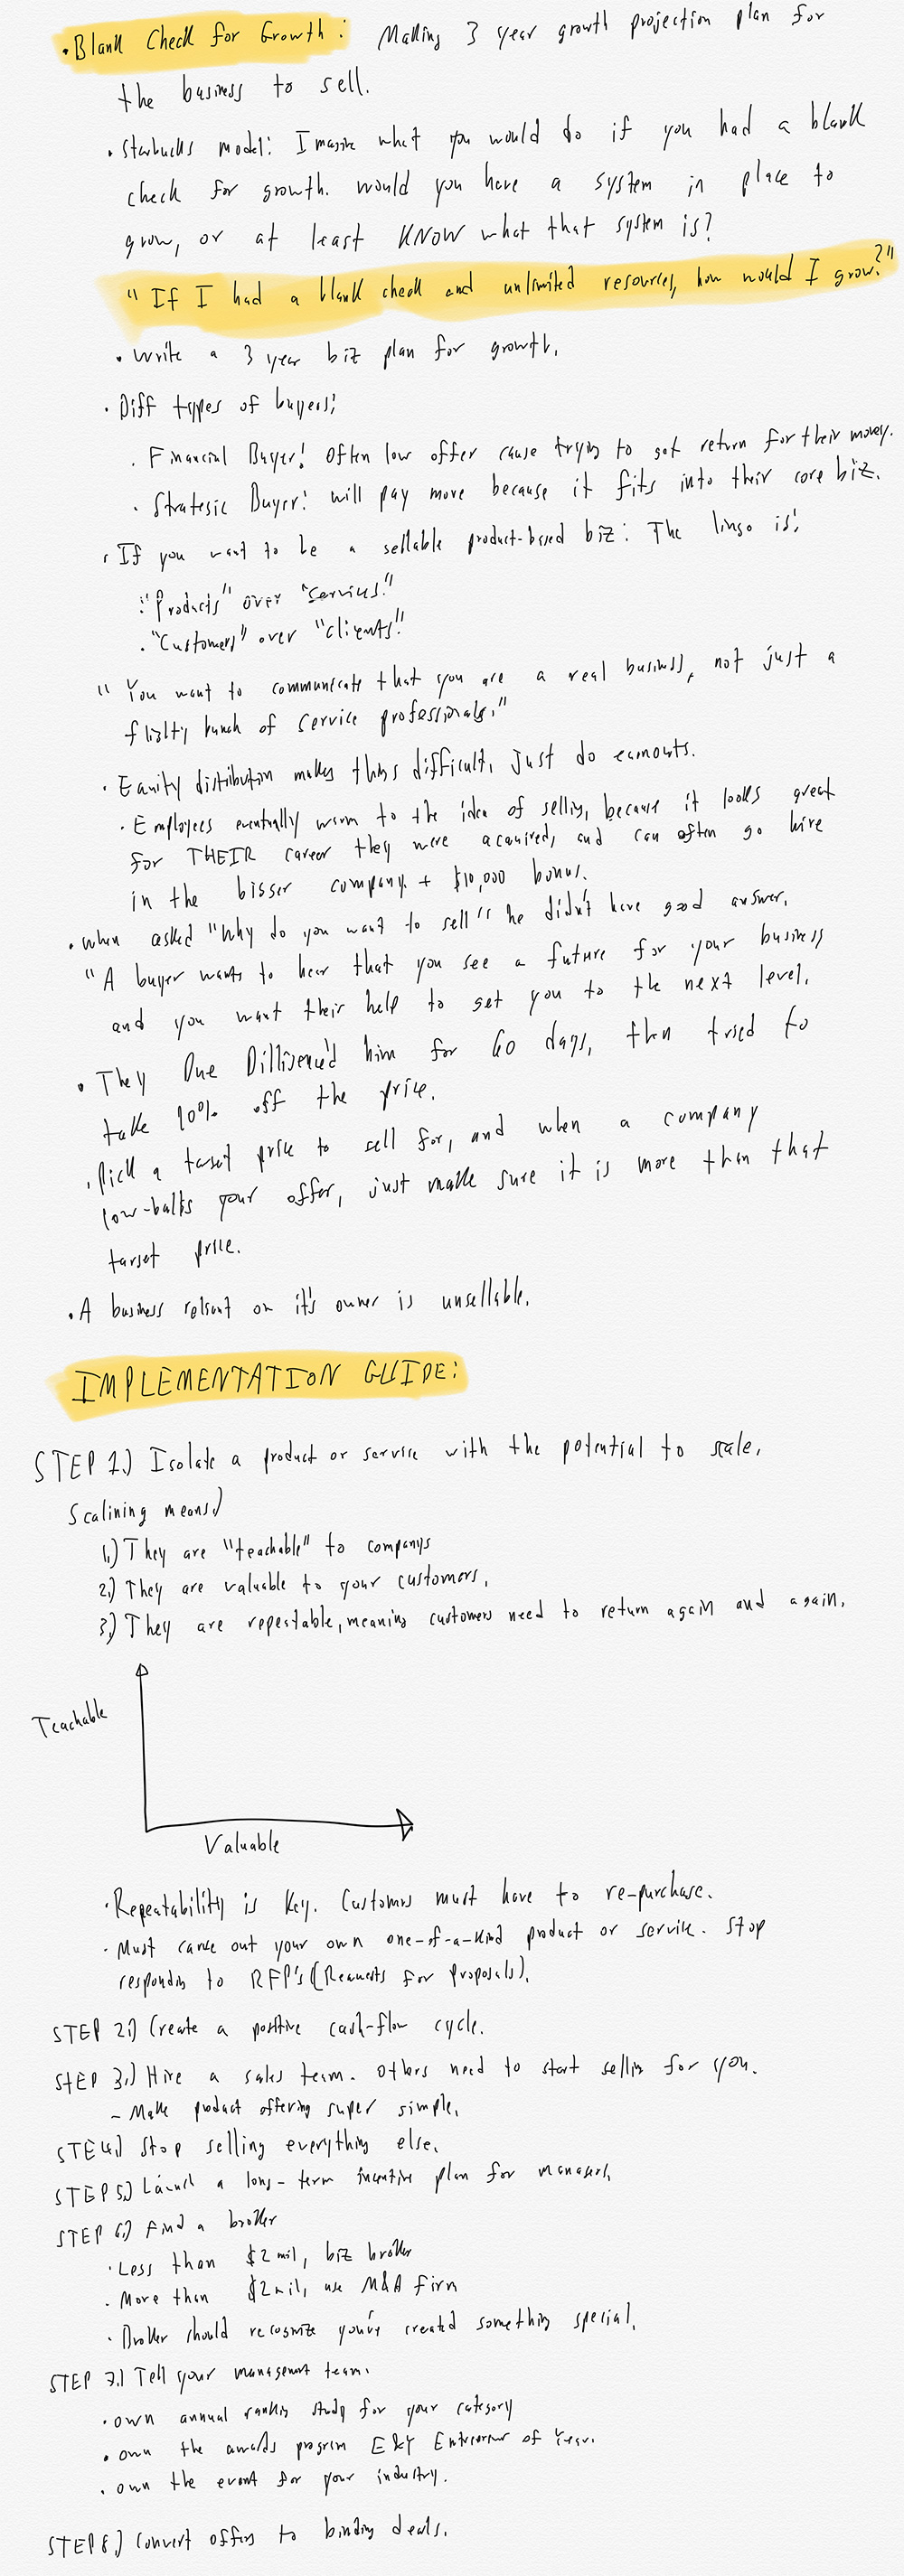 • Blank Check for Growth: Making 3 year growth projection plan for
the business to sell.
• Starbucks model: Imagine what you would do if you had a blank
check for growth. would you have a system in place to
grow, or at least KNOW what that system is?
"If I had a blank check and unlimited resources, how would I grow?"
• Write a 3 year biz plan for growth.
• Diff types of buyers:
• Financial Buyer: Often low offer cause trying to get return for their money.
• Strategic Buyer: will pay more because it fits into their core biz.
• If you want to be a sellable product-based biz: The lingo is:
• "Products" over "services."
• "Customers" over "clients."
"You want to communicate that you are a real business, not just a
flighty bunch of service professionals."
• Equity distribution makes things difficult, just do earnouts.
• Employees eventually warm to the idea of selling, because it looks great
for THEIR career they were acquired, and can often go hire
in the bigger company + $10,000 bonus.
• When asked "Why do you want to sell" he didn't have good answer.
"A buyer wants to hear that you see a future for your business
and you want their help to get you to the next level.
• They Due Dilligence'd him for 60 days, then tried to
take 20% off the price.
• Pick a target price to sell for, and when a company
low-balls your offer, just make sure it is more than that
target price.
• A business reliant on it's owner is unsellable.
IMPLEMENTATION GUIDE:
STEP 1.) Isolate a product or service with the potential to scale.
Scalining means:)
1.) They are "teachable" to companys
2.) They are valuable to your customers.
3.) They are repeatable, meaning customers need to return again and again.
Teachable
Valuable
• Repeatability is key. Customers must have to re-purchase.
• Must carve out your own one-of-a-kind product or service. Stop
responding to RFP's (Requests for Proposals).
STEP 2.) Create a positive cash-flow cycle.
STEP 3.) Hire a sales team. Others need to start selling for you.
- Make product offering super simple.
STE4.) Stop selling everything else.
STEP 5.) Launch a long-term incentive plan for managers
STEP 6.) Find a broker
• Less than $2 mil, biz broker
• More than $2 mil, use M&A firm
• Broker should recognize you've created something special.
STEP 7.) Tell your management team.
• own annual ranking study for your category
• own the awards program E&Y Entreprener of Year.
• own the event for your industry.
STEP 8.) Convert offers to binding deals.